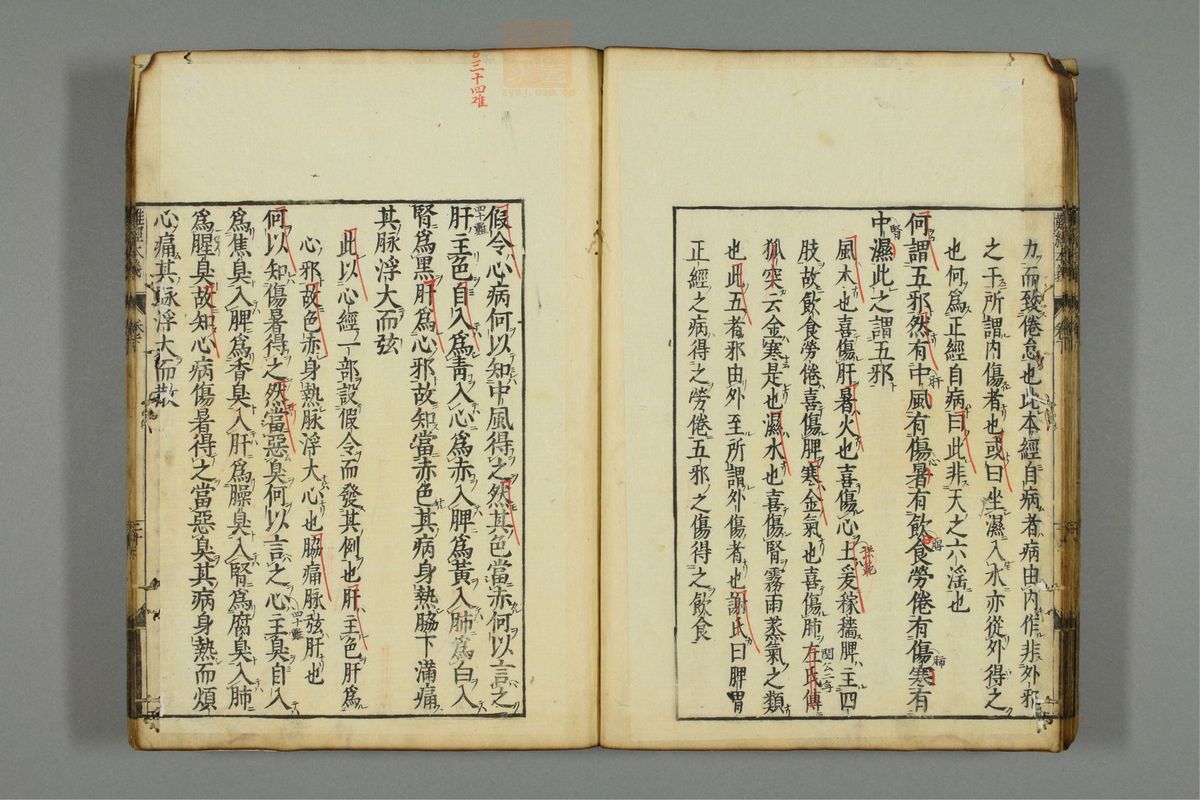 力而致倦怠也此本經自病者病由內作非外邪
之干所謂內傷者也或曰坐濕入水亦從外得之
也何爲正經自病曰此非天之六淫也
何謂五邪然有中風有傷暑有飲食勞倦有傷寒有
中濕此之謂五邪
風木也喜傷肝暑火也喜傷心土爰稼穡脾主四
肢故飲食勞倦喜傷脾寒金氣也喜傷肺左氏傳
狐突云金寒是也濕水也喜傷腎霧雨蒸氣之類
也此五者邪由外至所謂外傷者也謝氏曰脾胃
正經之病得之勞倦五邪之傷得之飲食
假令心病何以知中風得之然其色當赤何以言之
肝主色自入爲青入心爲赤入脾爲黃入肺爲白入
腎爲黑肝爲心邪故知當赤色其病身熱脇下滿痛
其脉浮大而弦
此以心經一部設假令而發其例也肝主色肝爲
心邪故色赤身熱脉浮大心也脇痛脉弦肝也
何以知傷暑得之然當惡臭何以言之心主臭自入
爲焦臭入脾爲香臭入肝爲臊臭入腎爲腐臭入肺
爲腥臭故知心病傷暑得之當惡臭其病身熱而煩
心痛其脉浮大而散
三十四难
四十難
四十難
肝
心
脾
肺
腎